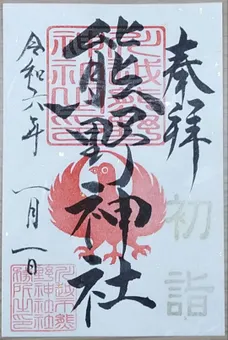 奉拝
初詣
熊野神社
令和六年
一月一日